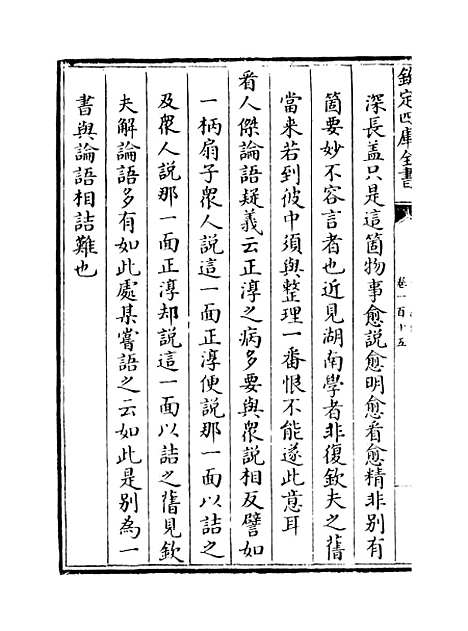 欽定四庫全書
卷一百十五
深長蓋只是這箇物事愈說愈明愈看愈精非別有
箇要妙不容言者也近見湖南學者非復欽夫之舊
當来若到彼中須與整理一番恨不能遂此意耳
看人傑論語疑義云正淳之病多要與衆說相反譬如
一柄扇子衆人說這一面正淳便說那一面以詰之
及衆人說那一面正淳却說這一面以詰之舊見欽
夫解論語多有如此處某嘗語之云如此是別為一
書與論語相詰難也